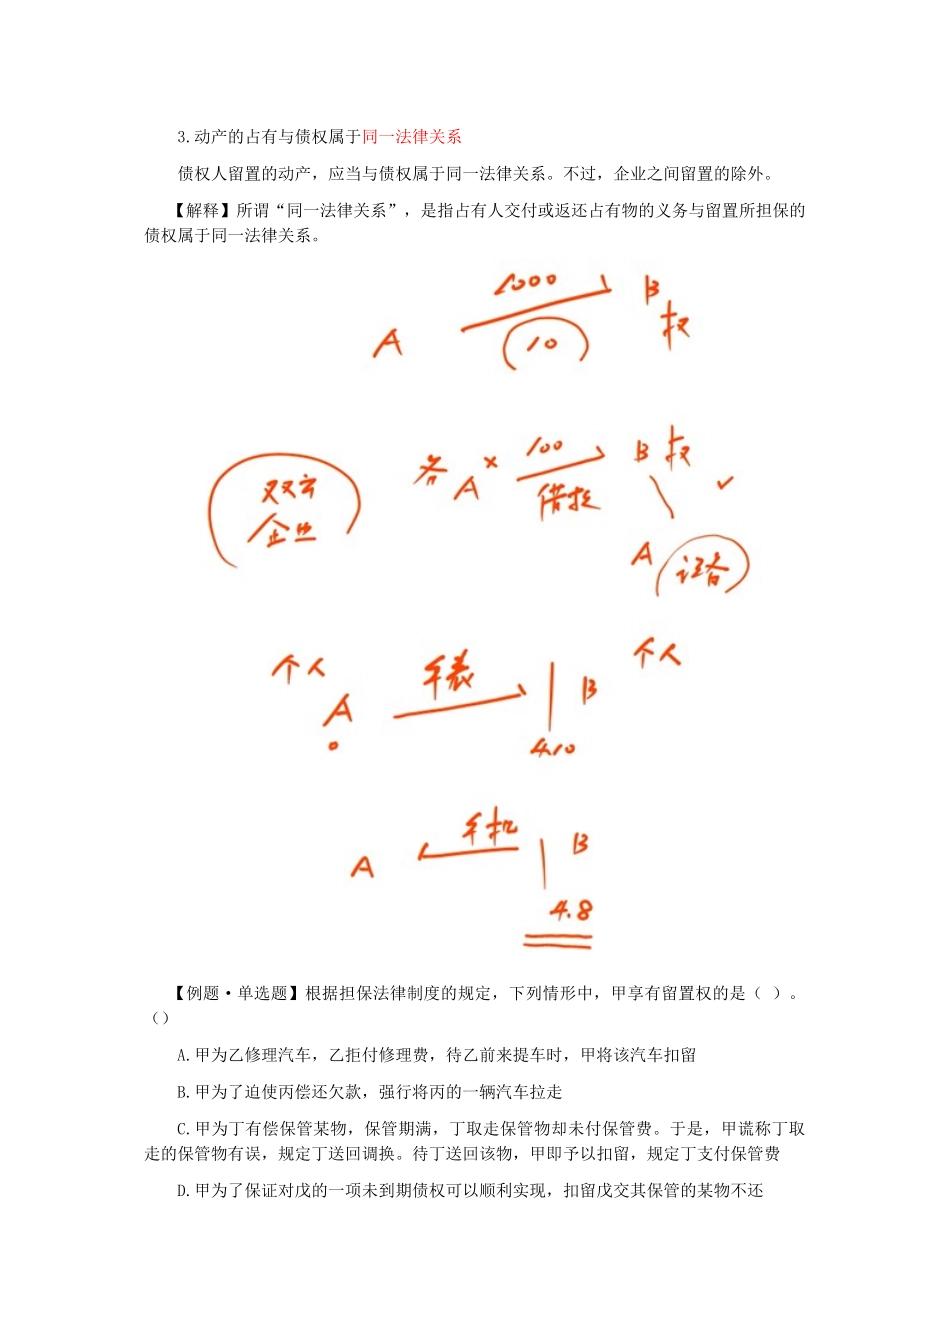 3.动产的占有与债权属于同一法律关系
债权人留置的动产，应当与债权属于同一法律关系。不过，企业之间留置的除外。
【解释】所谓“同一法律关系”，是指占有人交付或返还占有物的义务与留置所担保的
债权属于同一法律关系。
1000
B
A
10
权
各 A × 100 B 权 ✓
借
企业
A 设备
个人 手表 个人
A B
0 4.10
手机
A B
4.8
【例题·单选题】根据担保法律制度的规定，下列情形中，甲享有留置权的是（ ）。
()
A.甲为乙修理汽车，乙拒付修理费，待乙前来提车时，甲将该汽车扣留
B.甲为了迫使丙偿还欠款，强行将丙的一辆汽车拉走
C.甲为丁有偿保管某物，保管期满，丁取走保管物却未付保管费。于是，甲谎称丁取
走的保管物有误，规定丁送回调换。待丁送回该物，甲即予以扣留，规定丁支付保管费
D.甲为了保证对戊的一项未到期债权可以顺利实现，扣留戊交其保管的某物不还